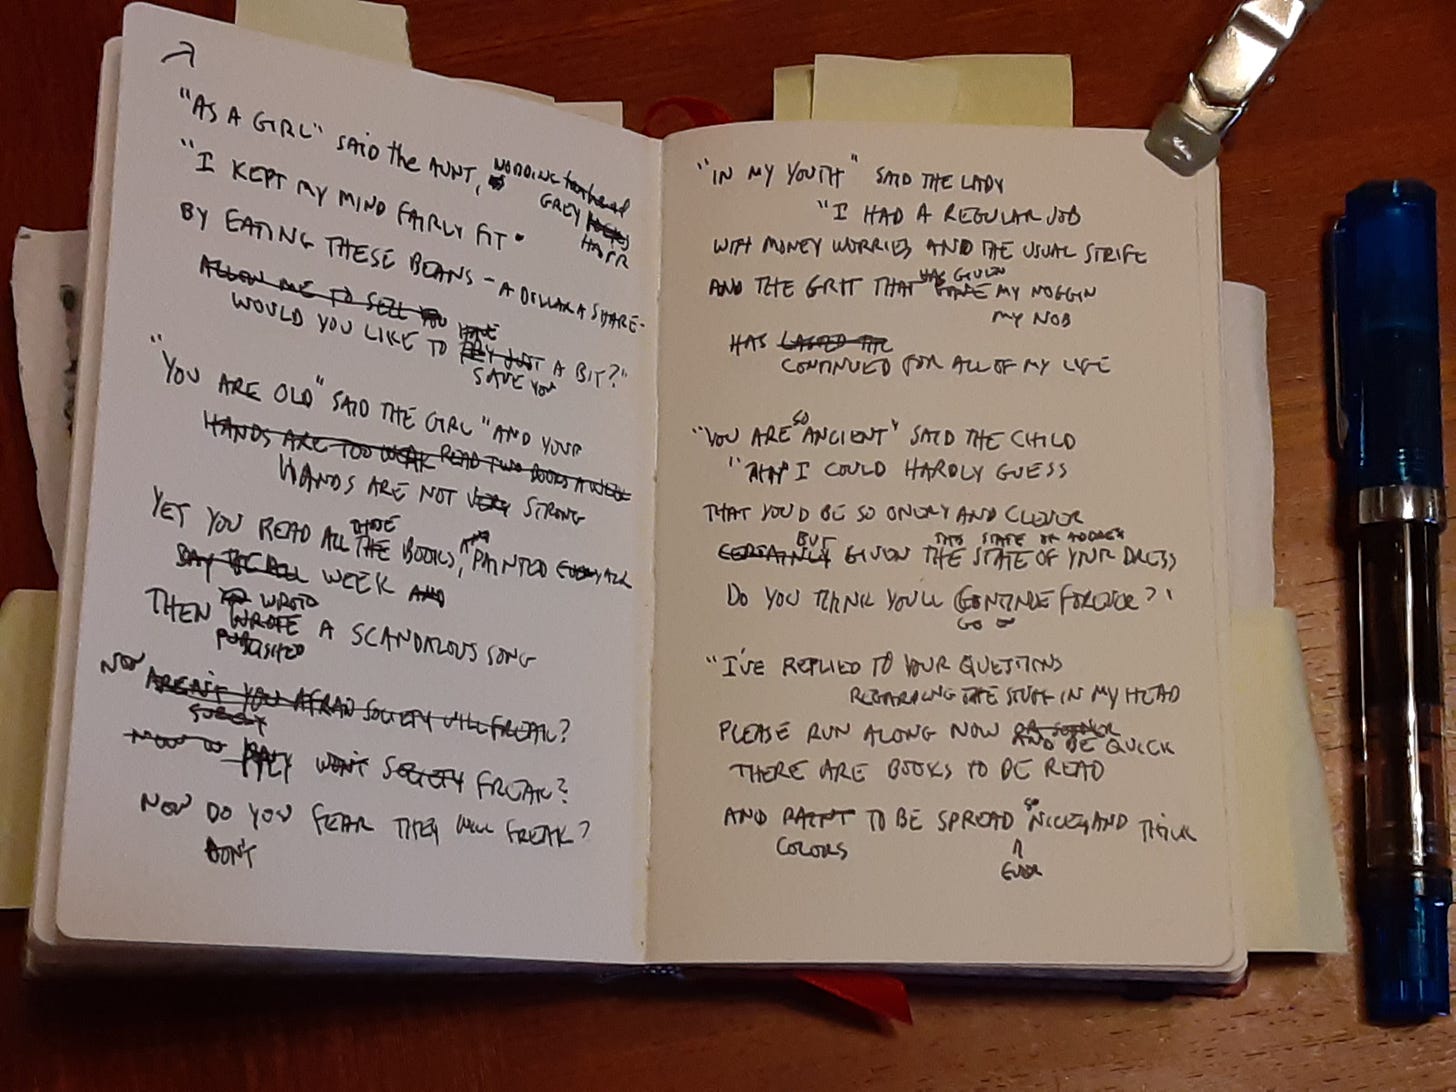 "AS A GIRL" SAID the AUNT, NODDING
GREY
HAIR
"I KEPT MY MIND FAIRLY FIT.
BY EATING THESE BEANS - A DOLLAR A SHARE -
ALLOW ME TO SELL YOU
WOULD YOU LIKE TO TRY JUST A BIT?"
SAVE YOU
"YOU ARE OLD" SAID THE GIRL "AND YOUR
HANDS ARE TOO WEAK READ TWO BOOKS A WEEK
HANDS ARE NOT VERY STRONG
YET YOU READ ALL THE BOOKS, PAINTED
THOSE
WEEK AND
WROTE
THEN WROTE A SCANDALOUS SONG
PUBLISHED
NOW AREN'T YOU AFRAID SOCIETY WILL FREAK?
SURELY
WON'T SOCIETY FREAK?
NOW DO YOU FEAR THEY WILL FREAK?
DON'T
"IN MY YOUTH" SAID THE LADY
"I HAD A REGULAR JOB
WITH MONEY WORRIES AND THE USUAL STRIFE
HAS GIVEN
AND THE GRIT THAT GAVE MY NOGGIN
MY NOB
HAS LASTED
CONTINUED FOR ALL OF MY LIFE
SO
"YOU ARE ANCIENT" SAID THE CHILD
" I COULD HARDLY GUESS
THAT YOU'D BE SO ONERY AND CLEVER
BUT THIS STATE OF
CERTAINLY GIVEN THE STATE OF YOUR DRESS
DO YOU THINK YOU'LL CONTINUE FOREVER?"
GO ON
"I'VE REPLIED TO YOUR QUESTIONS
REGARDING THE STUFF IN MY HEAD
PLEASE RUN ALONG NOW
AND BE QUICK
THERE ARE BOOKS TO BE READ
SO
AND PAINT TO BE SPREAD NICELY AND THICK
COLORS
EVER